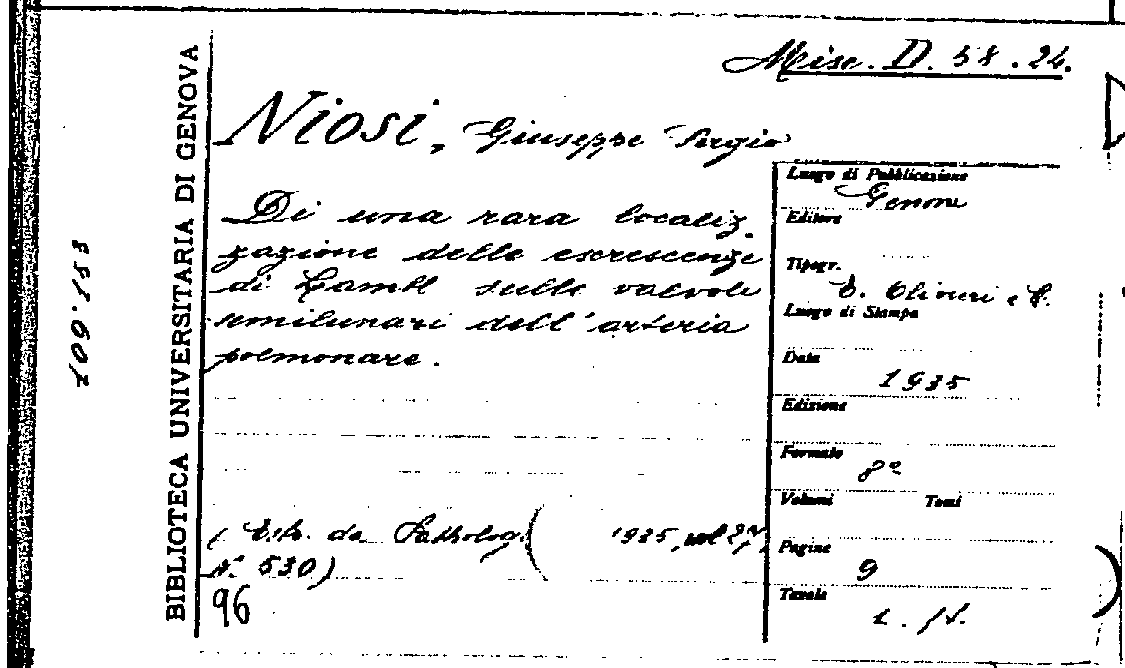 Misc. D. 58. 24.
BIBLIOTECA UNIVERSITARIA DI GENOVA
Niosi, Giuseppe Sergio
Di una rara localiz-
zazione delle escrescenze
di Lambl sulle valvole
semilunari dell'arteria
polmonare.
(Estr. da Pathologi( 1935, vol 27,
N. 530)
96
Luogo di Pubblicazione
Genova
Editore
Tipogr.
E. Olivieri e C.
Luogo di Stampa
Data
1935
Edizione
Formato
8º
Volumi Tomi
Pagine
9
Tavole